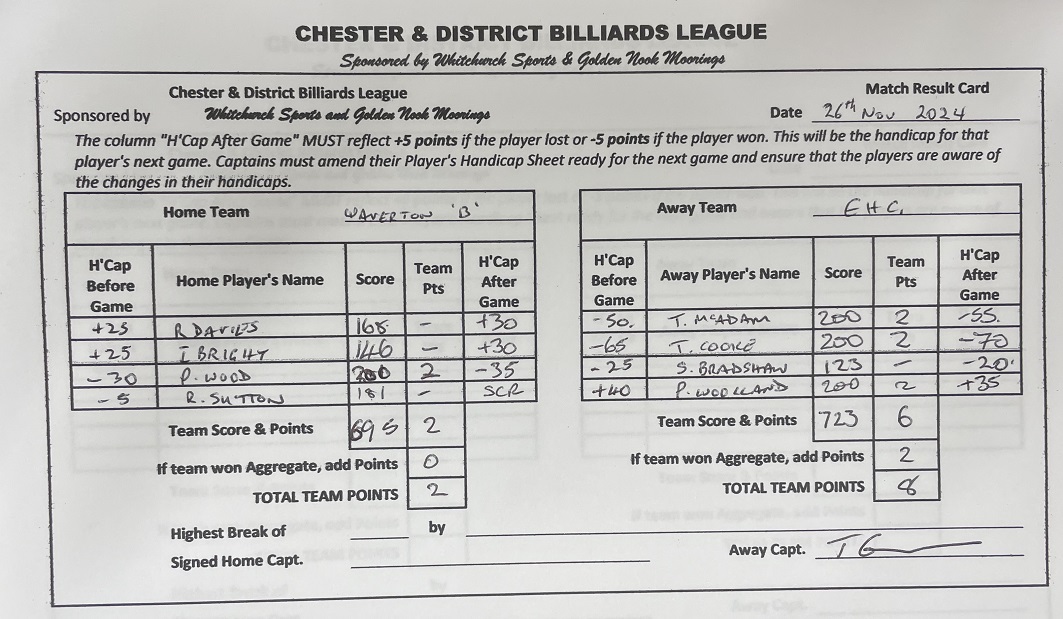 CHESTER & DISTRICT BILLIARDS LEAGUE
Sponsored by Whitchurch Sports & Golden Nook Moorings
Chester & District Billiards League
Match Result Card
Sponsored by Whitchurch Sports and Golden Nook Moorings
Date 26th Nov 2024
The column "H'Cap After Game" MUST reflect +5 points if the player lost or -5 points if the player won. This will be the handicap for that
player's next game. Captains must amend their Player's Handicap Sheet ready for the next game and ensure that the players are aware of
the changes in their handicaps.
Home Team WAVERTON 'B'
H'Cap Before Game Home Player's Name Score Team Pts H'Cap After Game
+25 R DAVIES 168 - +30
+25 I BRIGHT 146 - +30
-30 P. WOOD 200 2 -35
-5 R. SUTTON 181 - SCR
Team Score & Points 695 2
If team won Aggregate, add Points 0
TOTAL TEAM POINTS 2
Away Team EHC.
H'Cap Before Game Away Player's Name Score Team Pts H'Cap After Game
-50. T. McADAM 200 2 -55.
-65 T. COOKE 200 2 -70
-25 S. BRADSHAW 123 - -20.
+40 P. WOOLLAND 200 2 +35
Team Score & Points 723 6
If team won Aggregate, add Points 2
TOTAL TEAM POINTS 8
Highest Break of by
Signed Home Capt.
Away Capt.